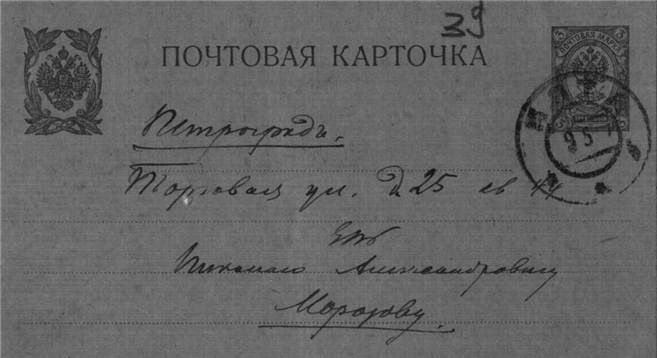 39
ПОЧТОВАЯ КАРТОЧКА
3 ПОЧТОВАЯ МАРКА 3
Петроградъ.
Торговая ул. д 25 кв
Николаю Александровичу
Морозову.